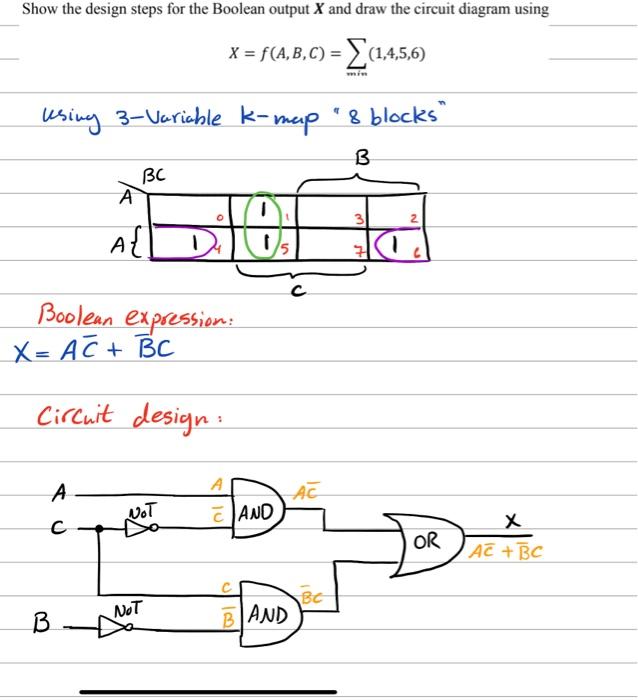 Show the design steps for the Boolean output X and draw the circuit diagram using
X = f(A, B, C) = ∑(1,4,5,6)
min
Using 3-Variable k-map "8 blocks"
B
BC
A
0 1 1 3 2
A{ 1 4 1 5 7 1 6
C
Boolean expression:
X = AC̅ + B̅C
Circuit design:
A A AC̅
NOT C̅ AND
C X
OR
AC̅ + B̅C
C B̅C
NOT AND
B B̅